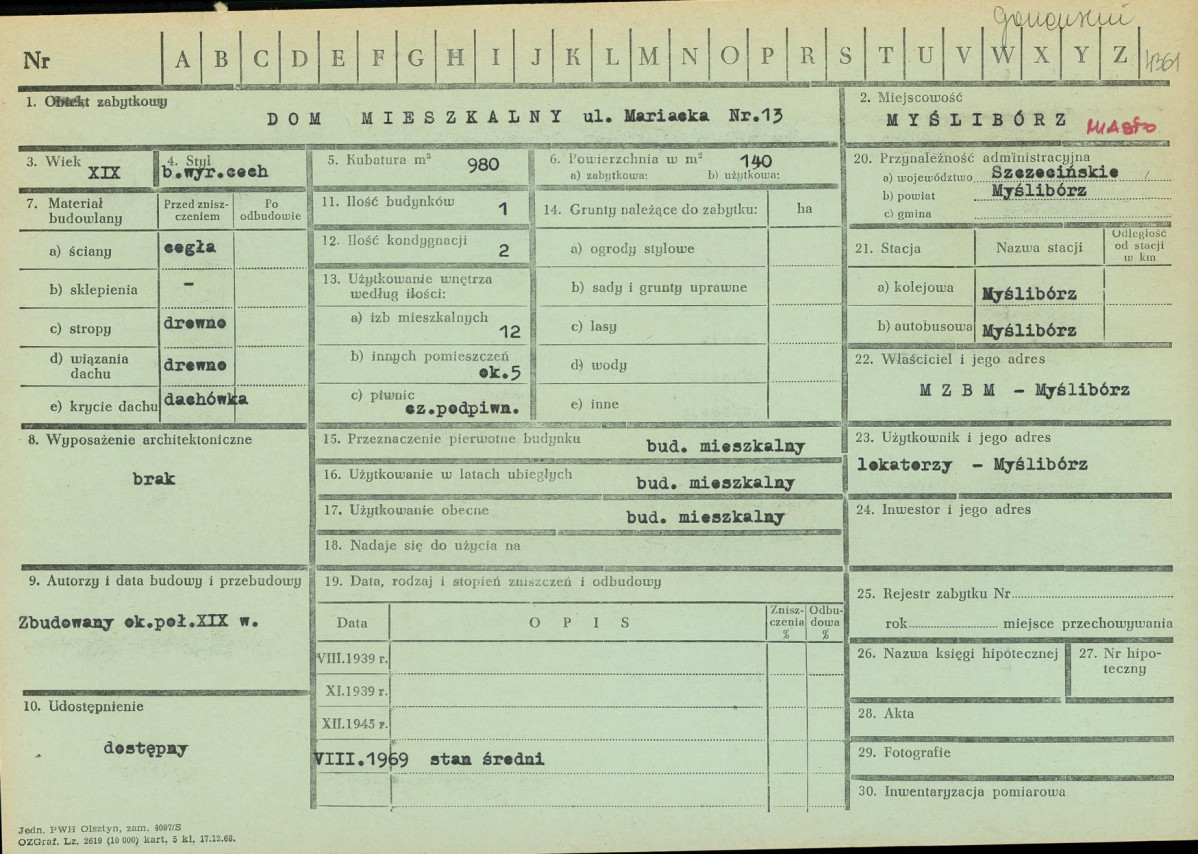 Nr A B C D E F G H I J K L M N O P R S T U V W X Y Z
1. Obiekt zabytkowy
DOM MIESZKALNY ul. Mariacka Nr.13
2. Miejscowość
MYŚLIBÓRZ MIASTO
3. Wiek
XIX
4. Styl
b.wyr.cech
5. Kubatura m³ 980
6. Powierzchnia w m² 140
a) zabytkowa: b) użytkowa:
20. Przynależność administracyjna
a) województwo Szczecińskie
b) powiat Myślibórz
c) gmina
7. Materiał budowlany
Przed zniszczeniem
Po odbudowie
a) ściany cegła
b) sklepienia -
c) stropy drewno
d) wiązania dachu drewno
e) krycie dachu dachówka
11. Ilość budynków 1
12. Ilość kondygnacji 2
13. Użytkowanie wnętrza
według ilości:
a) izb mieszkalnych
12
b) innych pomieszczeń
ok.5
c) piwnic
cz.podpiwn.
14. Grunty należące do zabytku: ha
a) ogrody stylowe
b) sady i grunty uprawne
c) lasy
d) wody
e) inne
21. Stacja Nazwa stacji
Odległość
od stacji
w km
a) kolejowa Myślibórz
b) autobusowa Myślibórz
22. Właściciel i jego adres
MZBM - Myślibórz
8. Wyposażenie architektoniczne
brak
15. Przeznaczenie pierwotne budynku
bud. mieszkalny
16. Użytkowanie w latach ubiegłych
bud. mieszkalny
17. Użytkowanie obecne
bud. mieszkalny
18. Nadaje się do użycia na
23. Użytkownik i jego adres
lokatorzy - Myślibórz
24. Inwestor i jego adres
9. Autorzy i data budowy i przebudowy
Zbudowany ok.poł.XIX w.
19. Data, rodzaj i stopień zniszczeń i odbudowy
Data OPIS
Zniszczenia %
Odbudowa %
VIII.1939 r.
XI.1939 r.
XII.1945 r.
VIII.1969 stan średni
25. Rejestr zabytku Nr
rok miejsce przechowywania
26. Nazwa księgi hipotecznej
27. Nr hipoteczny
10. Udostępnienie
dostępny
28. Akta
29. Fotografie
30. Inwentaryzacja pomiarowa
Jedn. PWH Olsztyn, zam. 4097/S
OZGraf. Lz. 2619 (10 000) kart, 5 kl, 17.12.68.